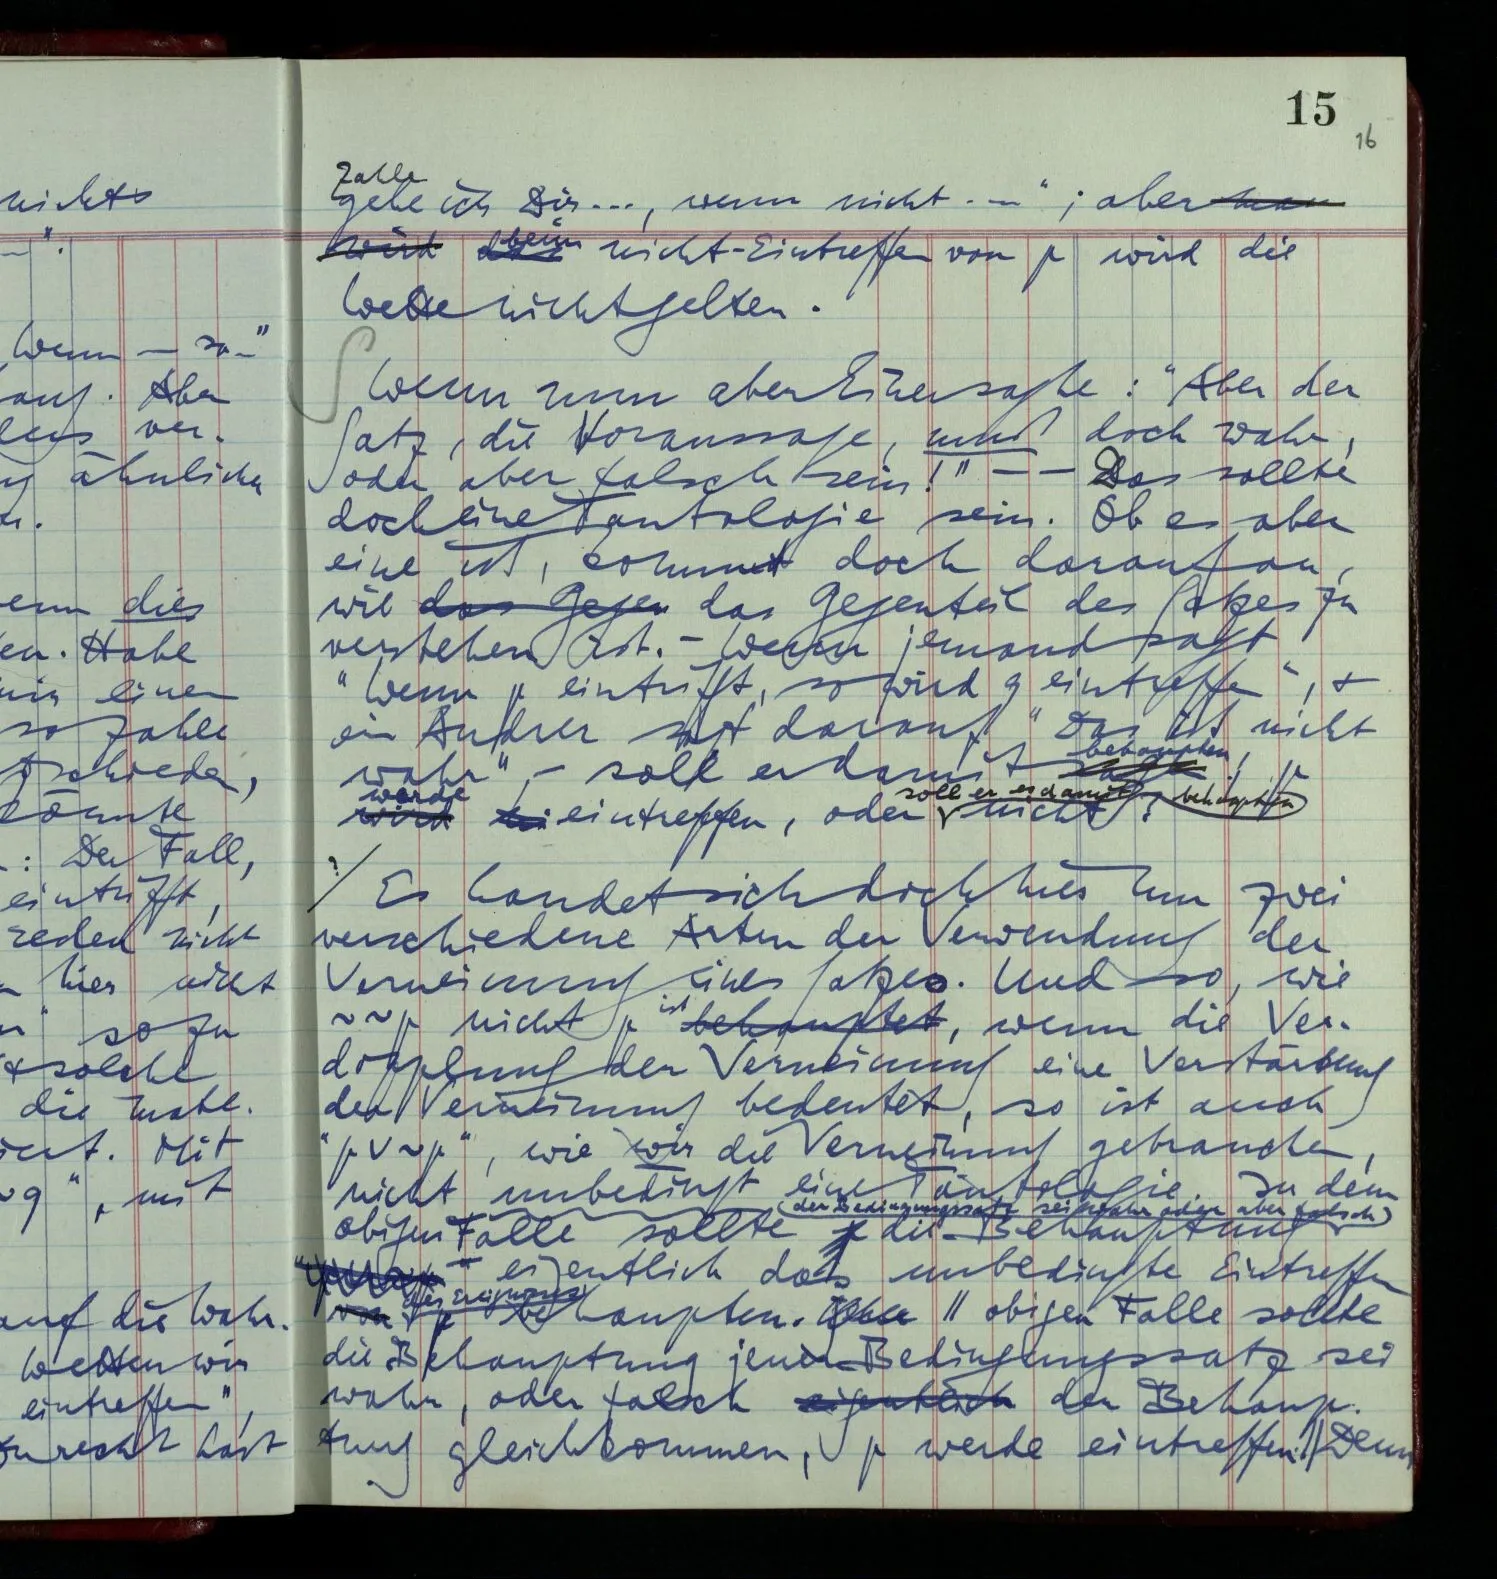 nichts
—".
Wenn — so —"
auf. Aber
ver-
ähnlichen
dies
Habe
mir einen
so zahle
könnte
: Der Fall,
eintrifft,
reden nicht
hier nicht
so zu
solche
die
Mit
mit
auf die Wahr-
Wetten wir
eintreffen",
recht hast
15
16
zahle
gebe ich Dir ..., wenn nicht . —" ; aber man
wird das beim nicht-Eintreffen von p wird die
Wette nicht gelten.
∫ Wenn nun aber Einer sagte: "Aber der
Satz, die Voraussage, muß doch wahr,
oder aber falsch sein!" — — Das sollte
doch eine Tautologie sein. Ob es aber
eine ist, kommt doch darauf an,
wie das Gegen das Gegenteil des Satzes zu
verstehen ist. – Wenn jemand sagt
"Wenn p eintrifft, so wird q eintreffen", &
ein Andrer sagt darauf "Das ist nicht
behaupten
wahr", – soll er damit sagen, p
werde soll er es damit behaupten
wird eintreffen, oder nicht?
?/ Es handelt sich doch hier um zwei
verschiedene Arten der Verwendung der
Verneinung eines Satzes. Und so, wie
~~p nicht p ist behauptet, wenn die Ver-
dopplung der Verneinung eine Verstärkung
der Verneinung bedeutet, so ist auch
"p ∨ ~p", wie wir die Verneinung gebrauchen,
nicht unbedingt eine Tautologie. In dem
(der Bedingungssatz sei wahr oder aber falsch)
obigen Falle sollte die Behauptung
eigentlich das unbedingte Eintreffen
des Ereignisses
von p behaupten. || obigen Falle sollte
die Behauptung jener Bedingungssatz sei
wahr, oder falsch eigentlich der Behaup-
tung gleichkommen, p werde eintreffen. || Denn